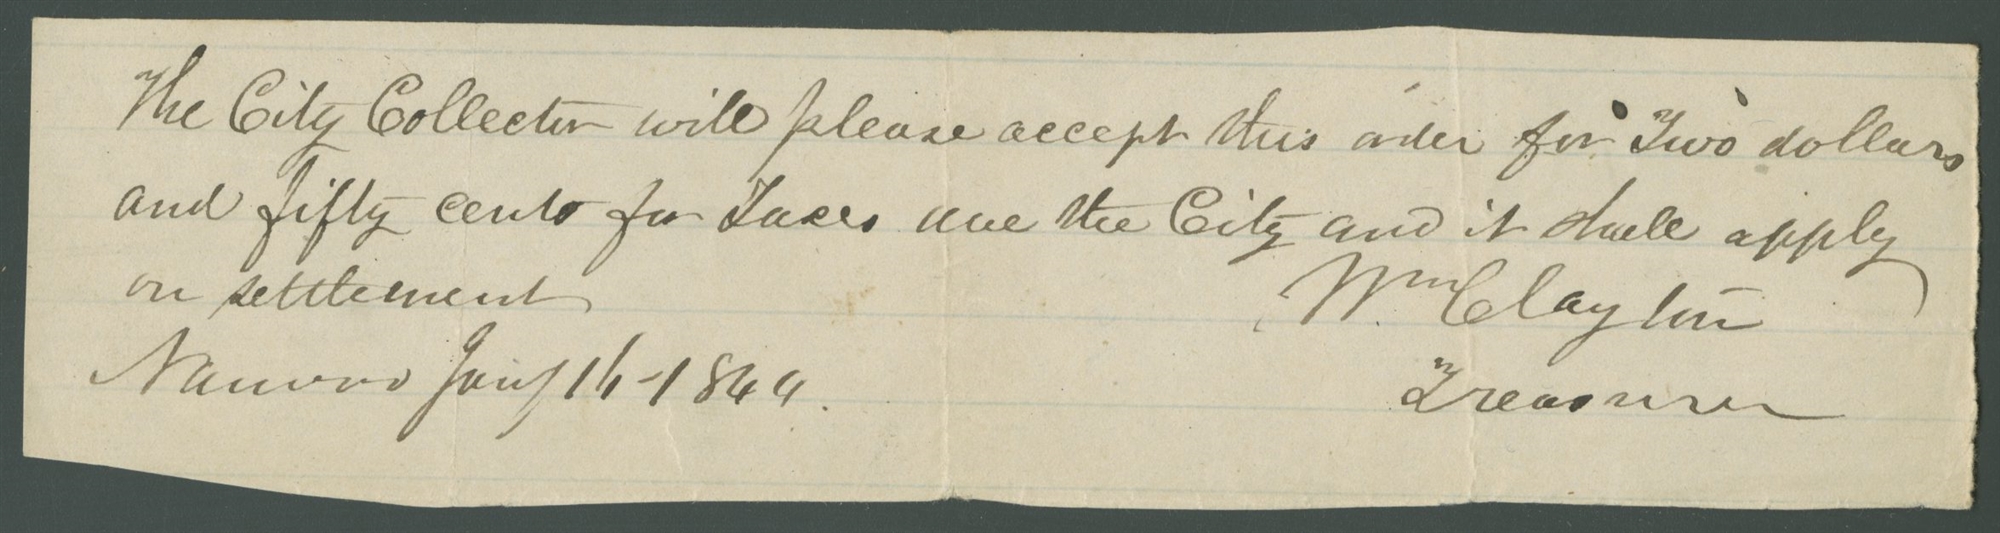 The City Collector will please accept this order for Two dollars
and fifty cents for Taxes due the City and it shall apply
on settlement
Wm Clayton
Nauvoo Jany 16-1844.
Treasurer